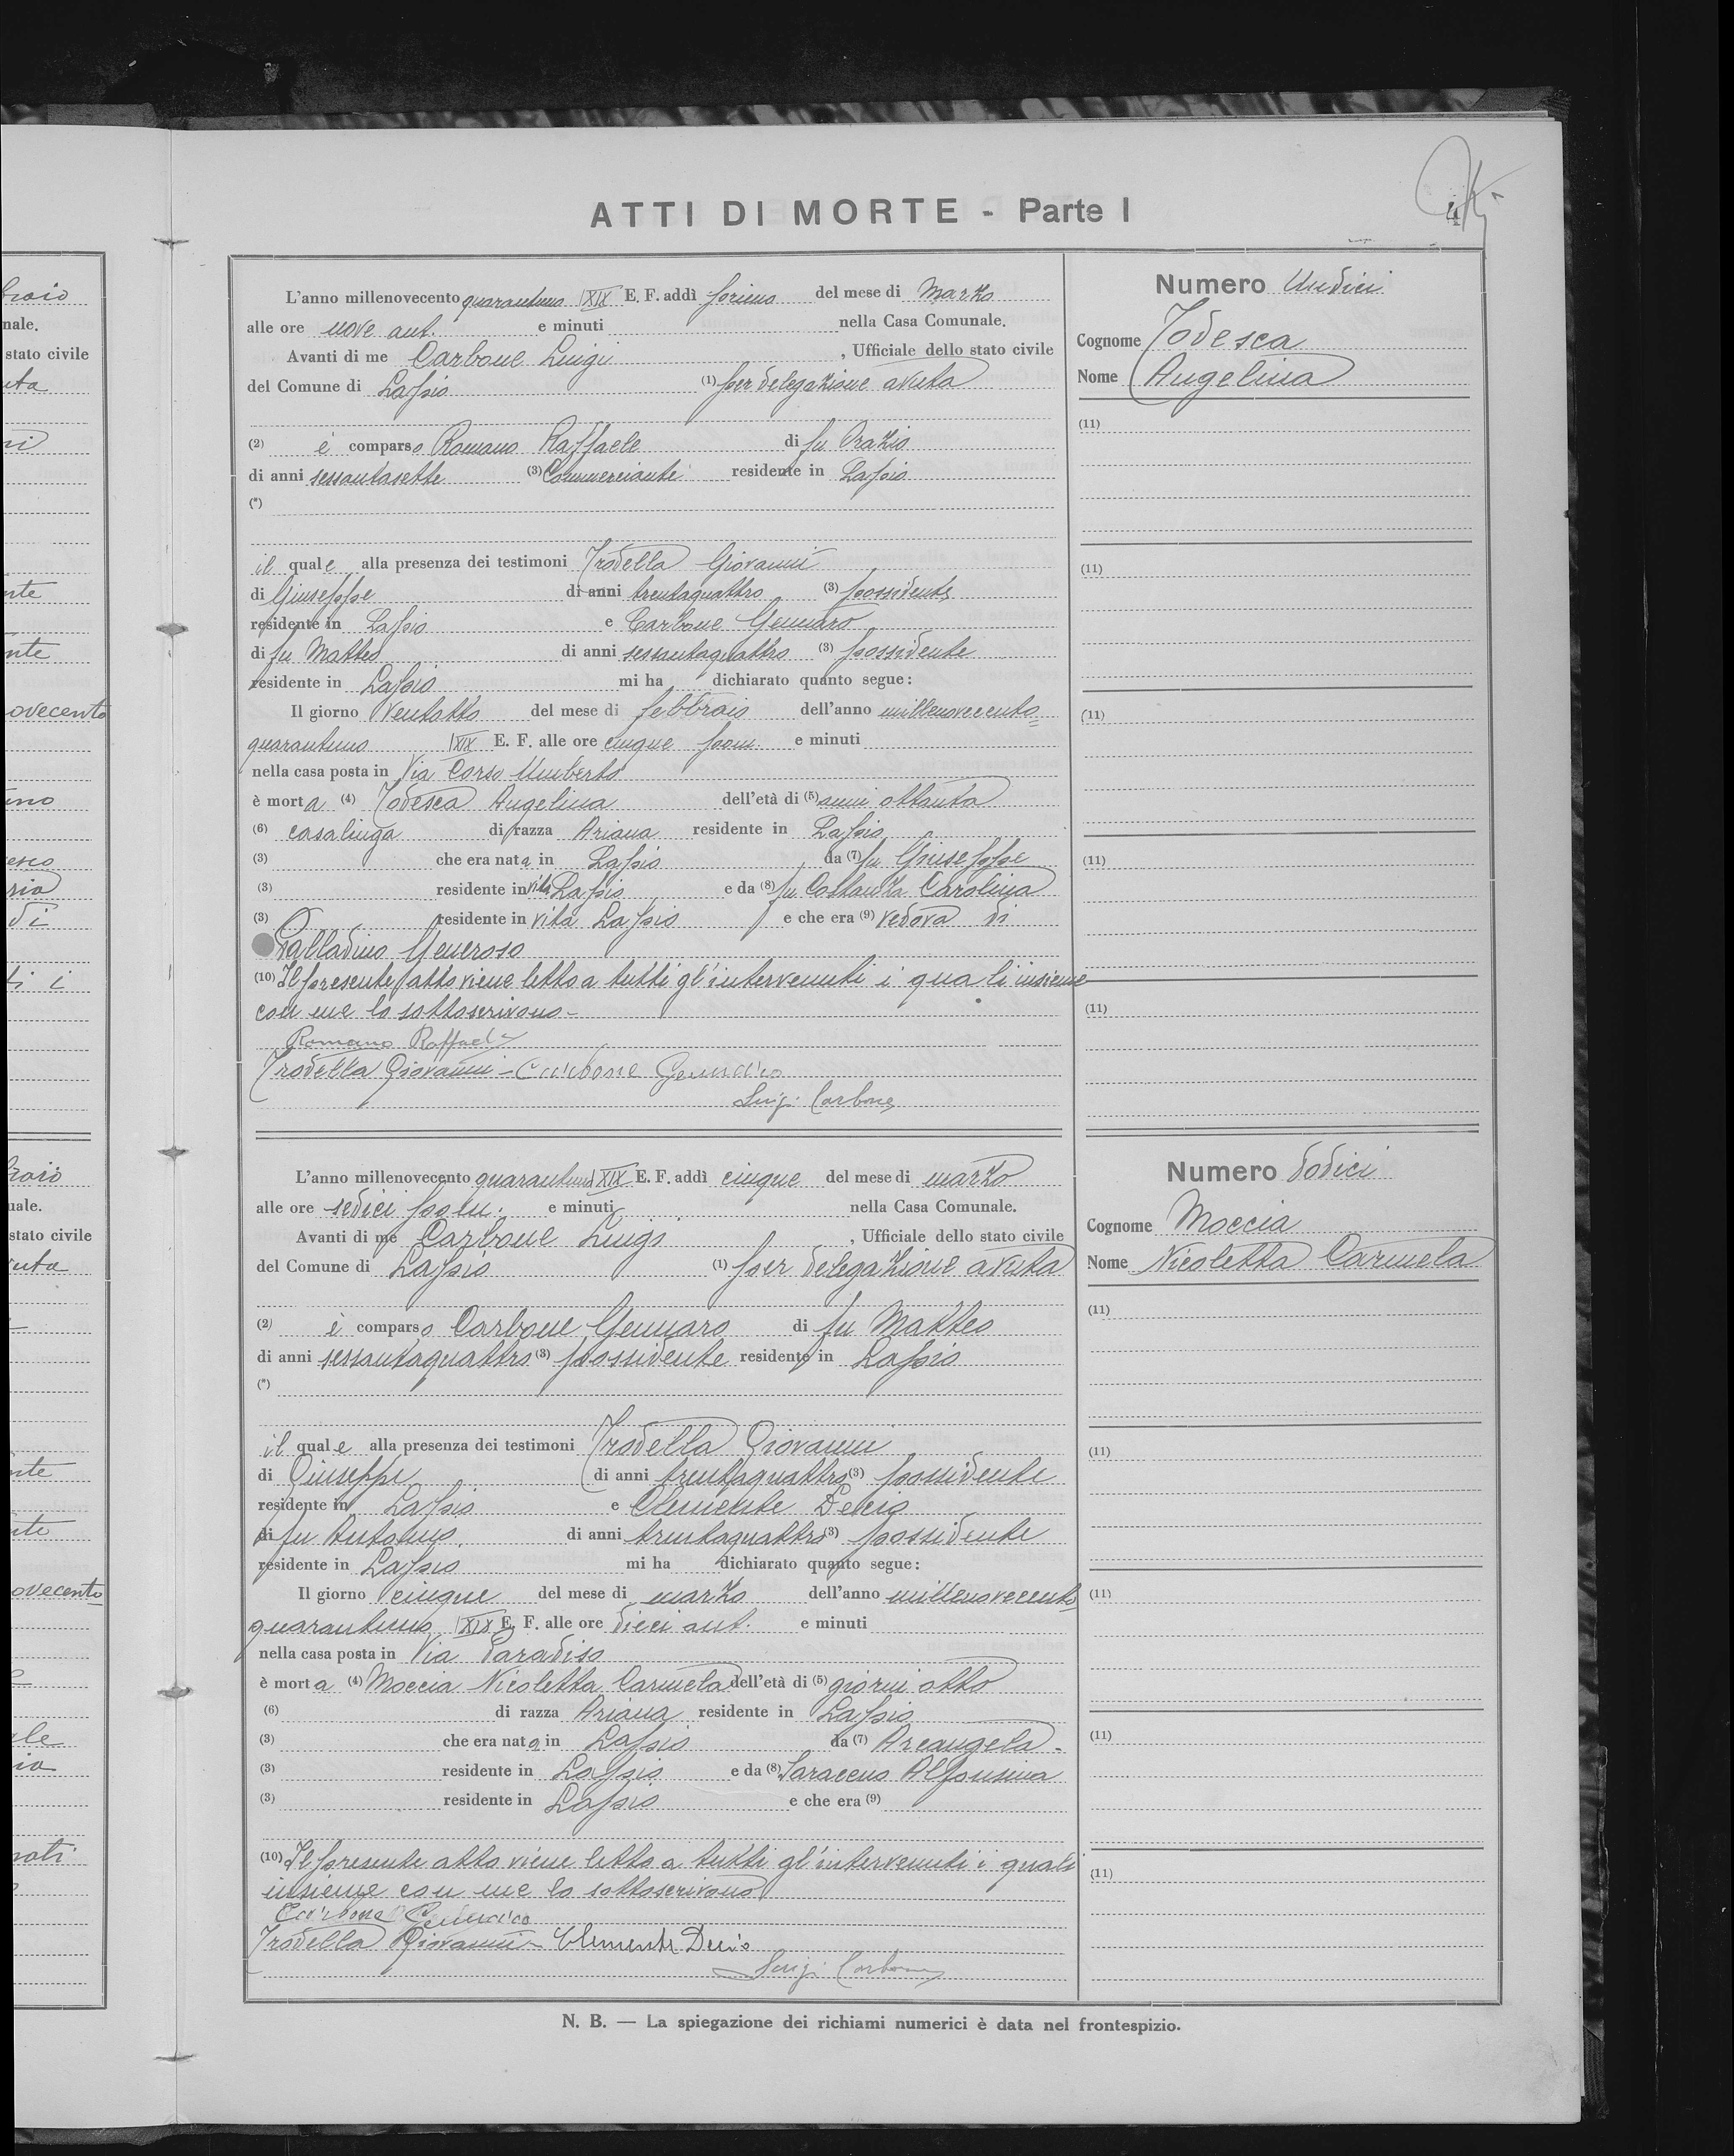 braio
nale.
stato civile
uta
ni
nte
nte
ovecento
uno
esco
ria
di
ti i
braio
nale.
stato civile
vuta
nte
nte
ovecento
le
ia
nati
ATTI DI MORTE - Parte I
4
L'anno millenovecento quarantuno XIX E. F. addì primo del mese di Marzo
alle ore nove ant. e minuti nella Casa Comunale.
Avanti di me Carbone Luigi , Ufficiale dello stato civile
del Comune di Lapio (1) per delegazione avuta
(2) è comparso Romano Raffaele di fu Orazio
di anni sessantasette (3) Commerciante residente in Lapio
(*)
il quale alla presenza dei testimoni Trodella Giovanni
di Giuseppe di anni trentaquattro (3) possidente
residente in Lapio e Carbone Gennaro
di fu Matteo di anni sessantaquattro (3) possidente
residente in Lapio mi ha dichiarato quanto segue:
Il giorno ventotto del mese di febbraio dell'anno millenovecento=
quarantuno XIX E. F. alle ore cinque pom. e minuti
nella casa posta in Via Corso Umberto
è morta (4) Todesca Angelina dell'età di (5) anni ottanta
(6) casalinga di razza Ariana residente in Lapio
(3) che era nata in Lapio da (7) fu Giuseppe
(3) residente in vita Lapio e da (8) fu Costanza Carolina
(3) residente in vita Lapio e che era (9) vedova di
Palladino Generoso
(10) Il presente atto viene letto a tutti gl'intervenuti i quali insieme
con me lo sottoscrivono-
Romano Raffaele
Trodella Giovanni - Carbone Gennaro
Luigi Carbone
Numero Undici
Cognome Todesca
Nome Angelina
(11)
(11)
(11)
(11)
(11)
L'anno millenovecento quarantuno XIX E. F. addì cinque del mese di marzo
alle ore sedici pom. e minuti nella Casa Comunale.
Avanti di me Carbone Luigi , Ufficiale dello stato civile
del Comune di Lapio (1) per delegazione avuta
(2) è comparso Carbone Gennaro di fu Matteo
di anni sessantaquattro (3) possidente residente in Lapio
(*)
il quale alla presenza dei testimoni Trodella Giovanni
di Giuseppe di anni trentaquattro (3) possidente
residente in Lapio e Clemente Decio
di fu Antonio di anni trentaquattro (3) possidente
residente in Lapio mi ha dichiarato quanto segue:
Il giorno cinque del mese di marzo dell'anno millenovecento
quarantuno XIX E. F. alle ore dieci ant. e minuti
nella casa posta in Via Paradiso
è morta (4) Moccia Nicoletta Carmela dell'età di (5) giorni otto
(6) di razza Ariana residente in Lapio
(3) che era nata in Lapio da (7) Arcangelo -
(3) residente in Lapio e da (8) Saraceno Alfonsina
(3) residente in Lapio e che era (9)
(10) Il presente atto viene letto a tutti gl'intervenuti i quali
insieme con me lo sottoscrivono
Carbone Gennaro
Trodella Giovanni - Clemente Decio
Luigi Carbone
Numero dodici
Cognome Moccia
Nome Nicoletta Carmela
(11)
(11)
(11)
(11)
(11)
N. B. — La spiegazione dei richiami numerici è data nel frontespizio.